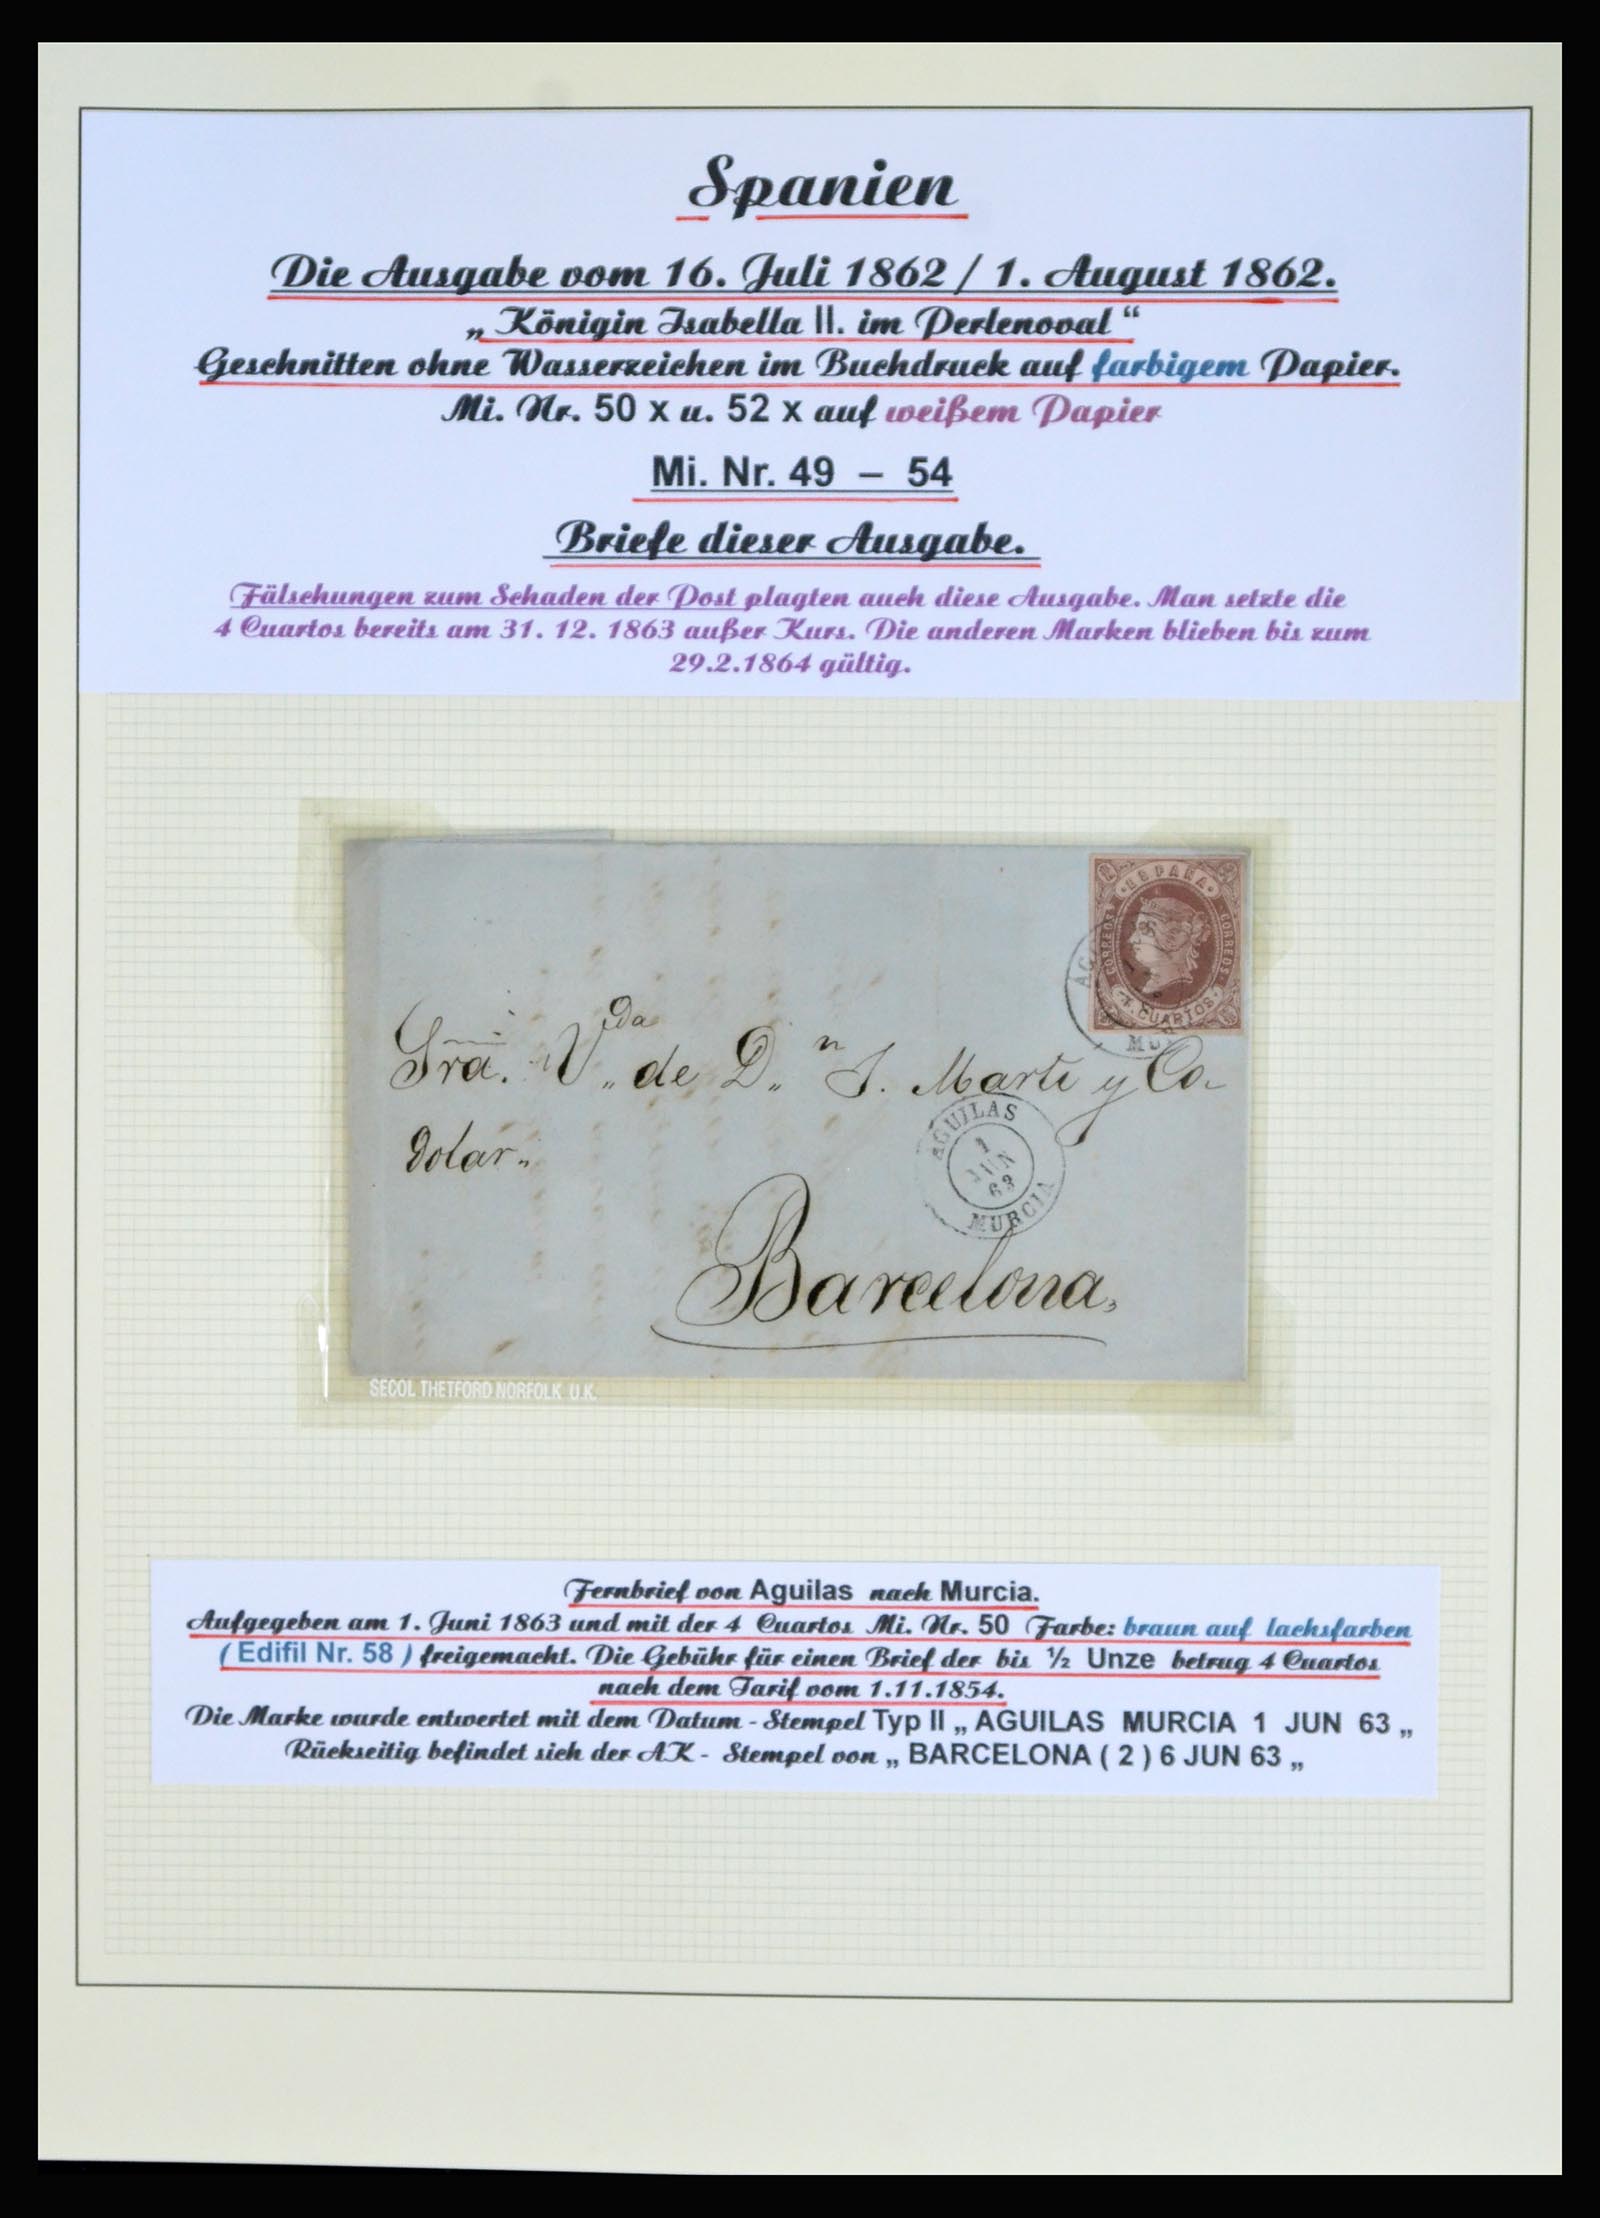 Spanien
Die Ausgabe vom 16. Juli 1862 / 1. August 1862.
„ Königin Isabella II. im Perlenoval “
Geschnitten ohne Wasserzeichen im Buchdruck auf farbigem Papier.
Mi. Nr. 50 x u. 52 x auf weißem Papier
Mi. Nr. 49 – 54
Briefe dieser Ausgabe.
Fälschungen zum Schaden der Post plagten auch diese Ausgabe. Man setzte die
4 Cuartos bereits am 31. 12. 1863 außer Kurs. Die anderen Marken blieben bis zum
29.2.1864 gültig.
ESPAÑA
CORREOS
CORREOS
4 CUARTOS
Sra. Vda de Dn J. Marti y Co
AGUILAS
1
JUN
63
MURCIA
Barcelona,
SECOL THETFORD NORFOLK U.K.
Fernbrief von Aguilas nach Murcia.
Aufgegeben am 1. Juni 1863 und mit der 4 Cuartos Mi. Nr. 50 Farbe: braun auf lachsfarben
( Edifil Nr. 58 ) freigemacht. Die Gebühr für einen Brief der bis ½ Unze betrug 4 Cuartos
nach dem Tarif vom 1.11.1854.
Die Marke wurde entwertet mit dem Datum - Stempel Typ II „ AGUILAS MURCIA 1 JUN 63 „
Rückseitig befindet sich der AK - Stempel von „ BARCELONA ( 2 ) 6 JUN 63 „